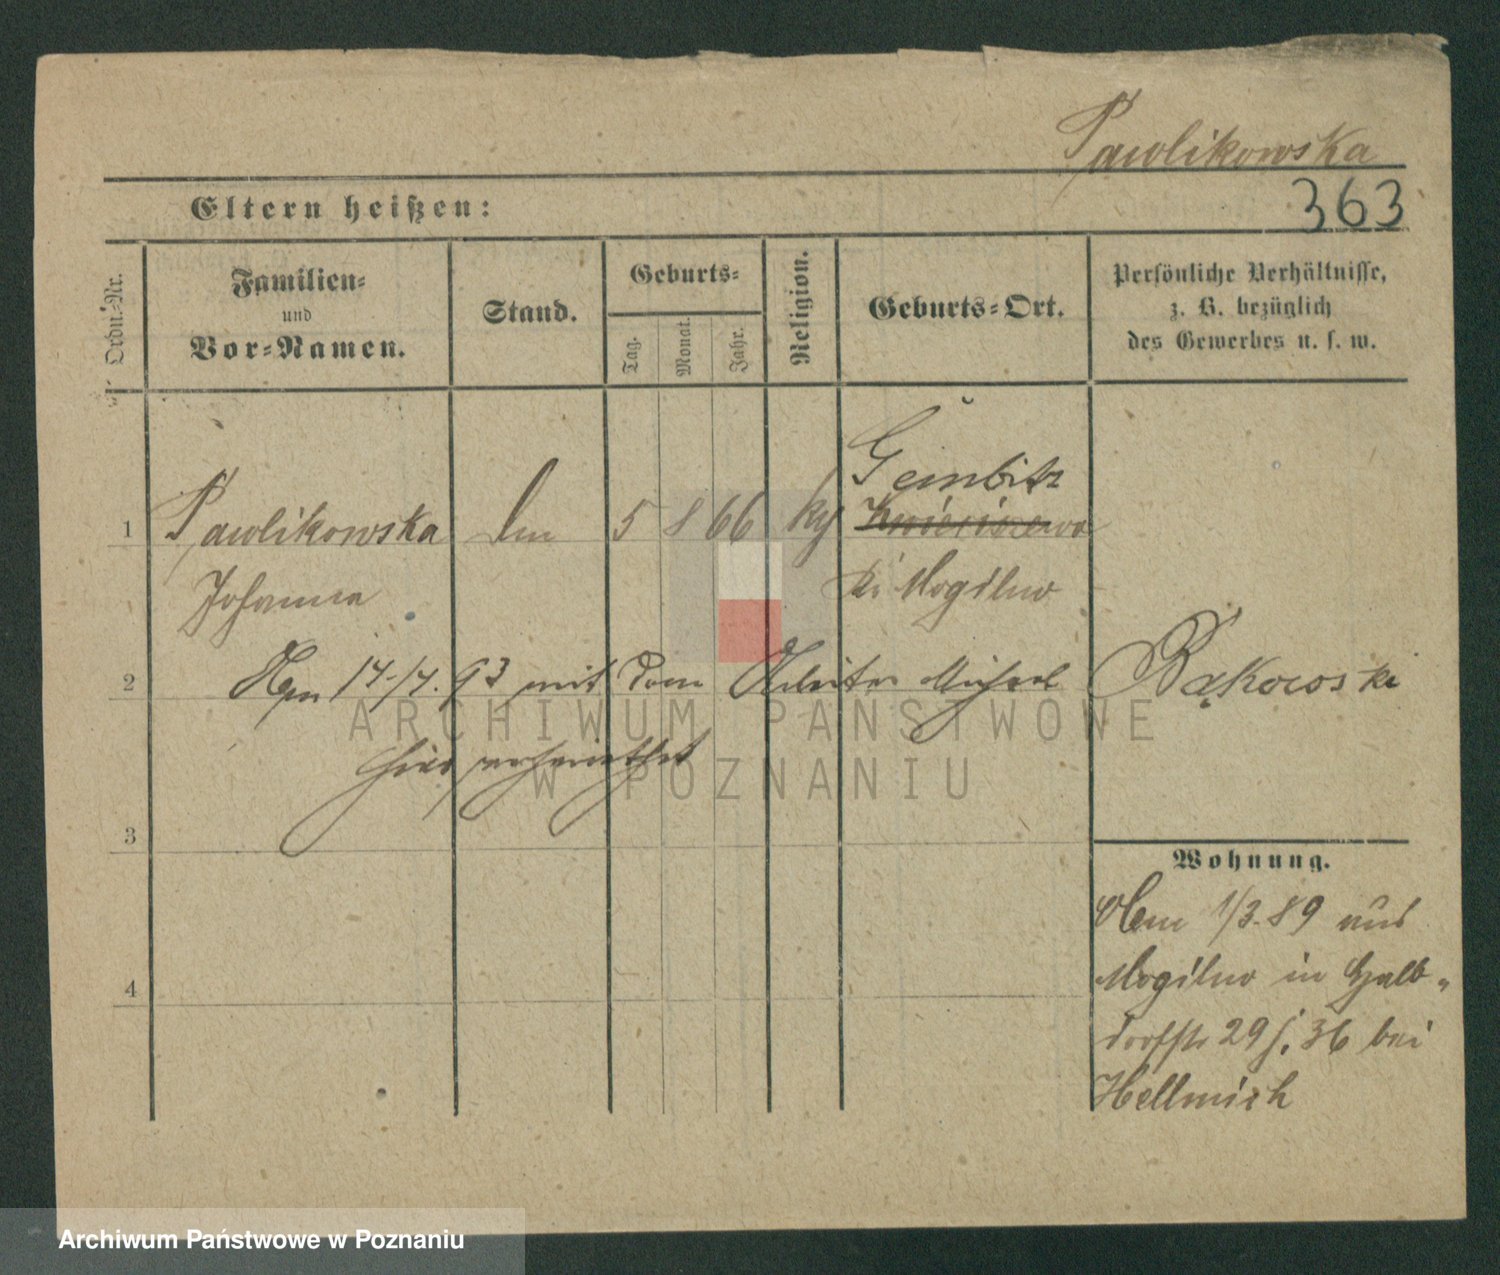 Pawlikowska
363
Eltern heißen:
Ordn.-Nr.
Familien-
und
Vor-Namen.
Stand.
Geburts-
Tag.
Monat.
Jahr.
Religion.
Geburts-Ort.
Persönliche Verhältnisse,
z. B. bezüglich
des Gewerbes u. s. w.
Gembitz
1 Pawlikowska 5 8 66 Kwieciszewo
Johanna Kr Mogilno
2 Am 17/7. 93 mit dem Arbeiter Michael Bąkowski
hier verheirathet
3
Wohnung.
Vom 1/3. 89 aus
Mogilno in Halb-
dorfstr 29 j. 36 bei
Hellmich
4
ARCHIWUM PAŃSTWOWE
W POZNANIU
Archiwum Państwowe w Poznaniu